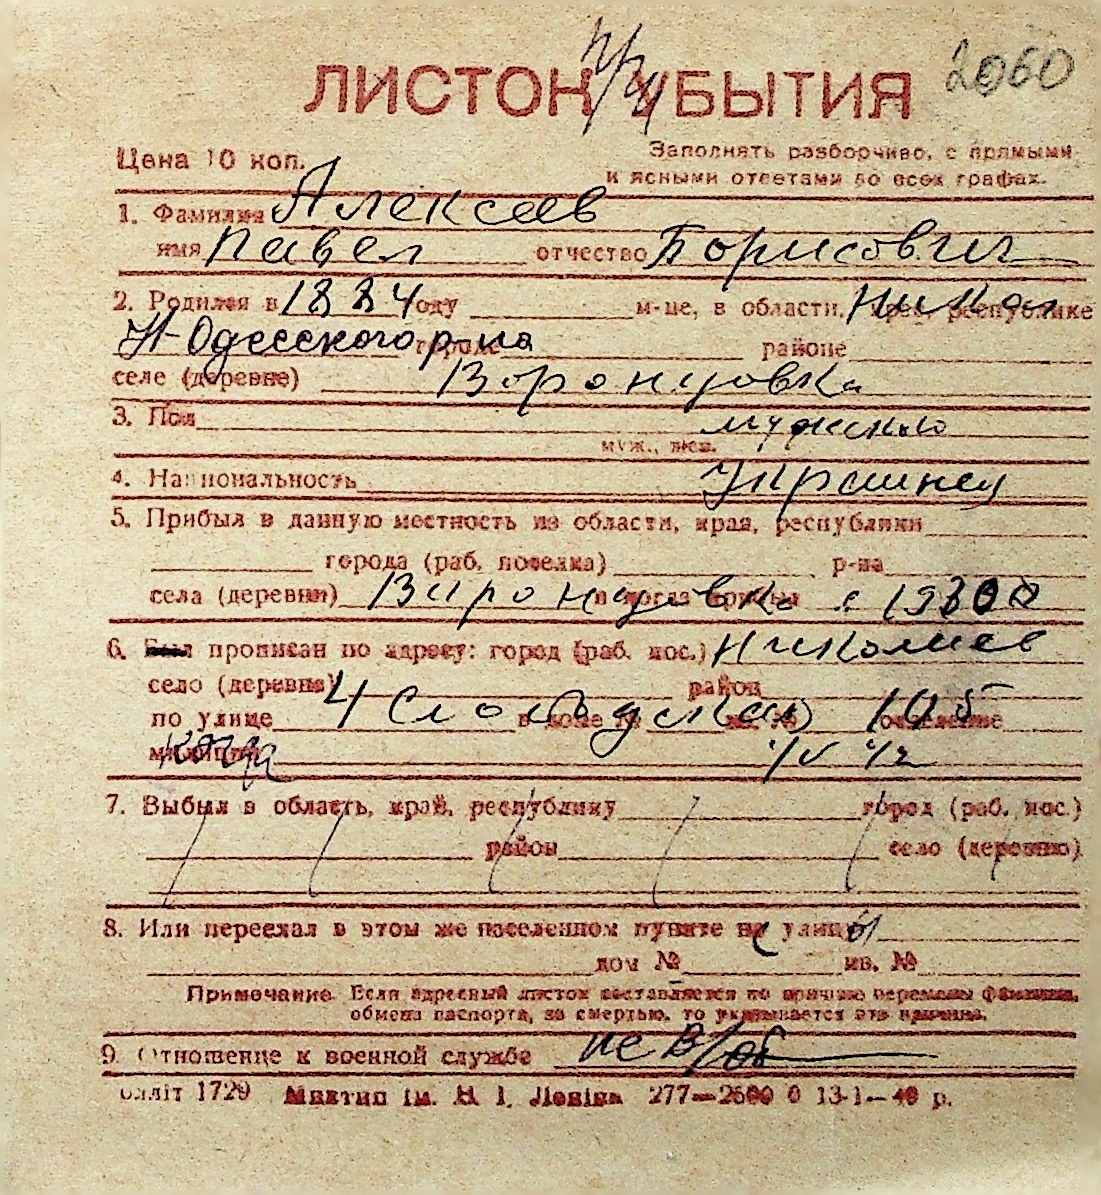 2060
ЛИСТОК УБЫТИЯ
При
Цена 10 коп.
Заполнять разборчиво, с прямыми
и ясными ответами во всех графах.
1. Фамилия Алексеев
имя Павел отчество Борисович
2. Родился в 1884 году м-це, в области, крае, республике Никол
Н-Одесского р-на городе районе
селе (деревне) Воронцовка
3. Пол мужской
муж., жен.
4. Национальность Украинец
5. Прибыл в данную местность из области, края, республики
города (раб. поселка) р-на
села (деревни) Воронцовка и когда прибыл с 1930
6. Был прописан по адресу: город (раб. пос.) Николаев
село (деревне) район
по улице 4 Слободская в доме № кв. № 105 отделение
милиции когда
7. Выбыл в область, край, республику город (раб. пос.)
район село (деревню)
8. Или переехал в этом же населенном пункте на улицу
дом № кв. №
Примечание. Если адресный листок составляется по причине перемены фамилии,
обмена паспорта, за смертью, то указывается эта причина.
9. Отношение к военной службе не в/об
Оплліт 1729 Миктип ім. В. І. Леніна 277—2500 0 13-1—40 р.